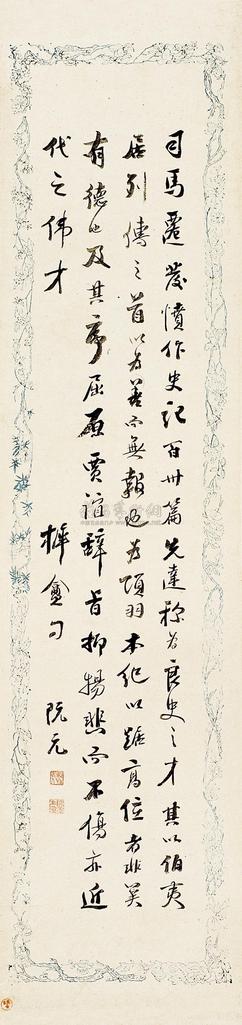 司馬遷發憤作史記百卅篇先達稱為良史之才其以伯夷
居列傳之首以為善而無報也為項羽本紀以踞高位者非關
有德也及其序屈原賈誼辭旨抑揚悲而不傷亦近
代之偉才
阮元